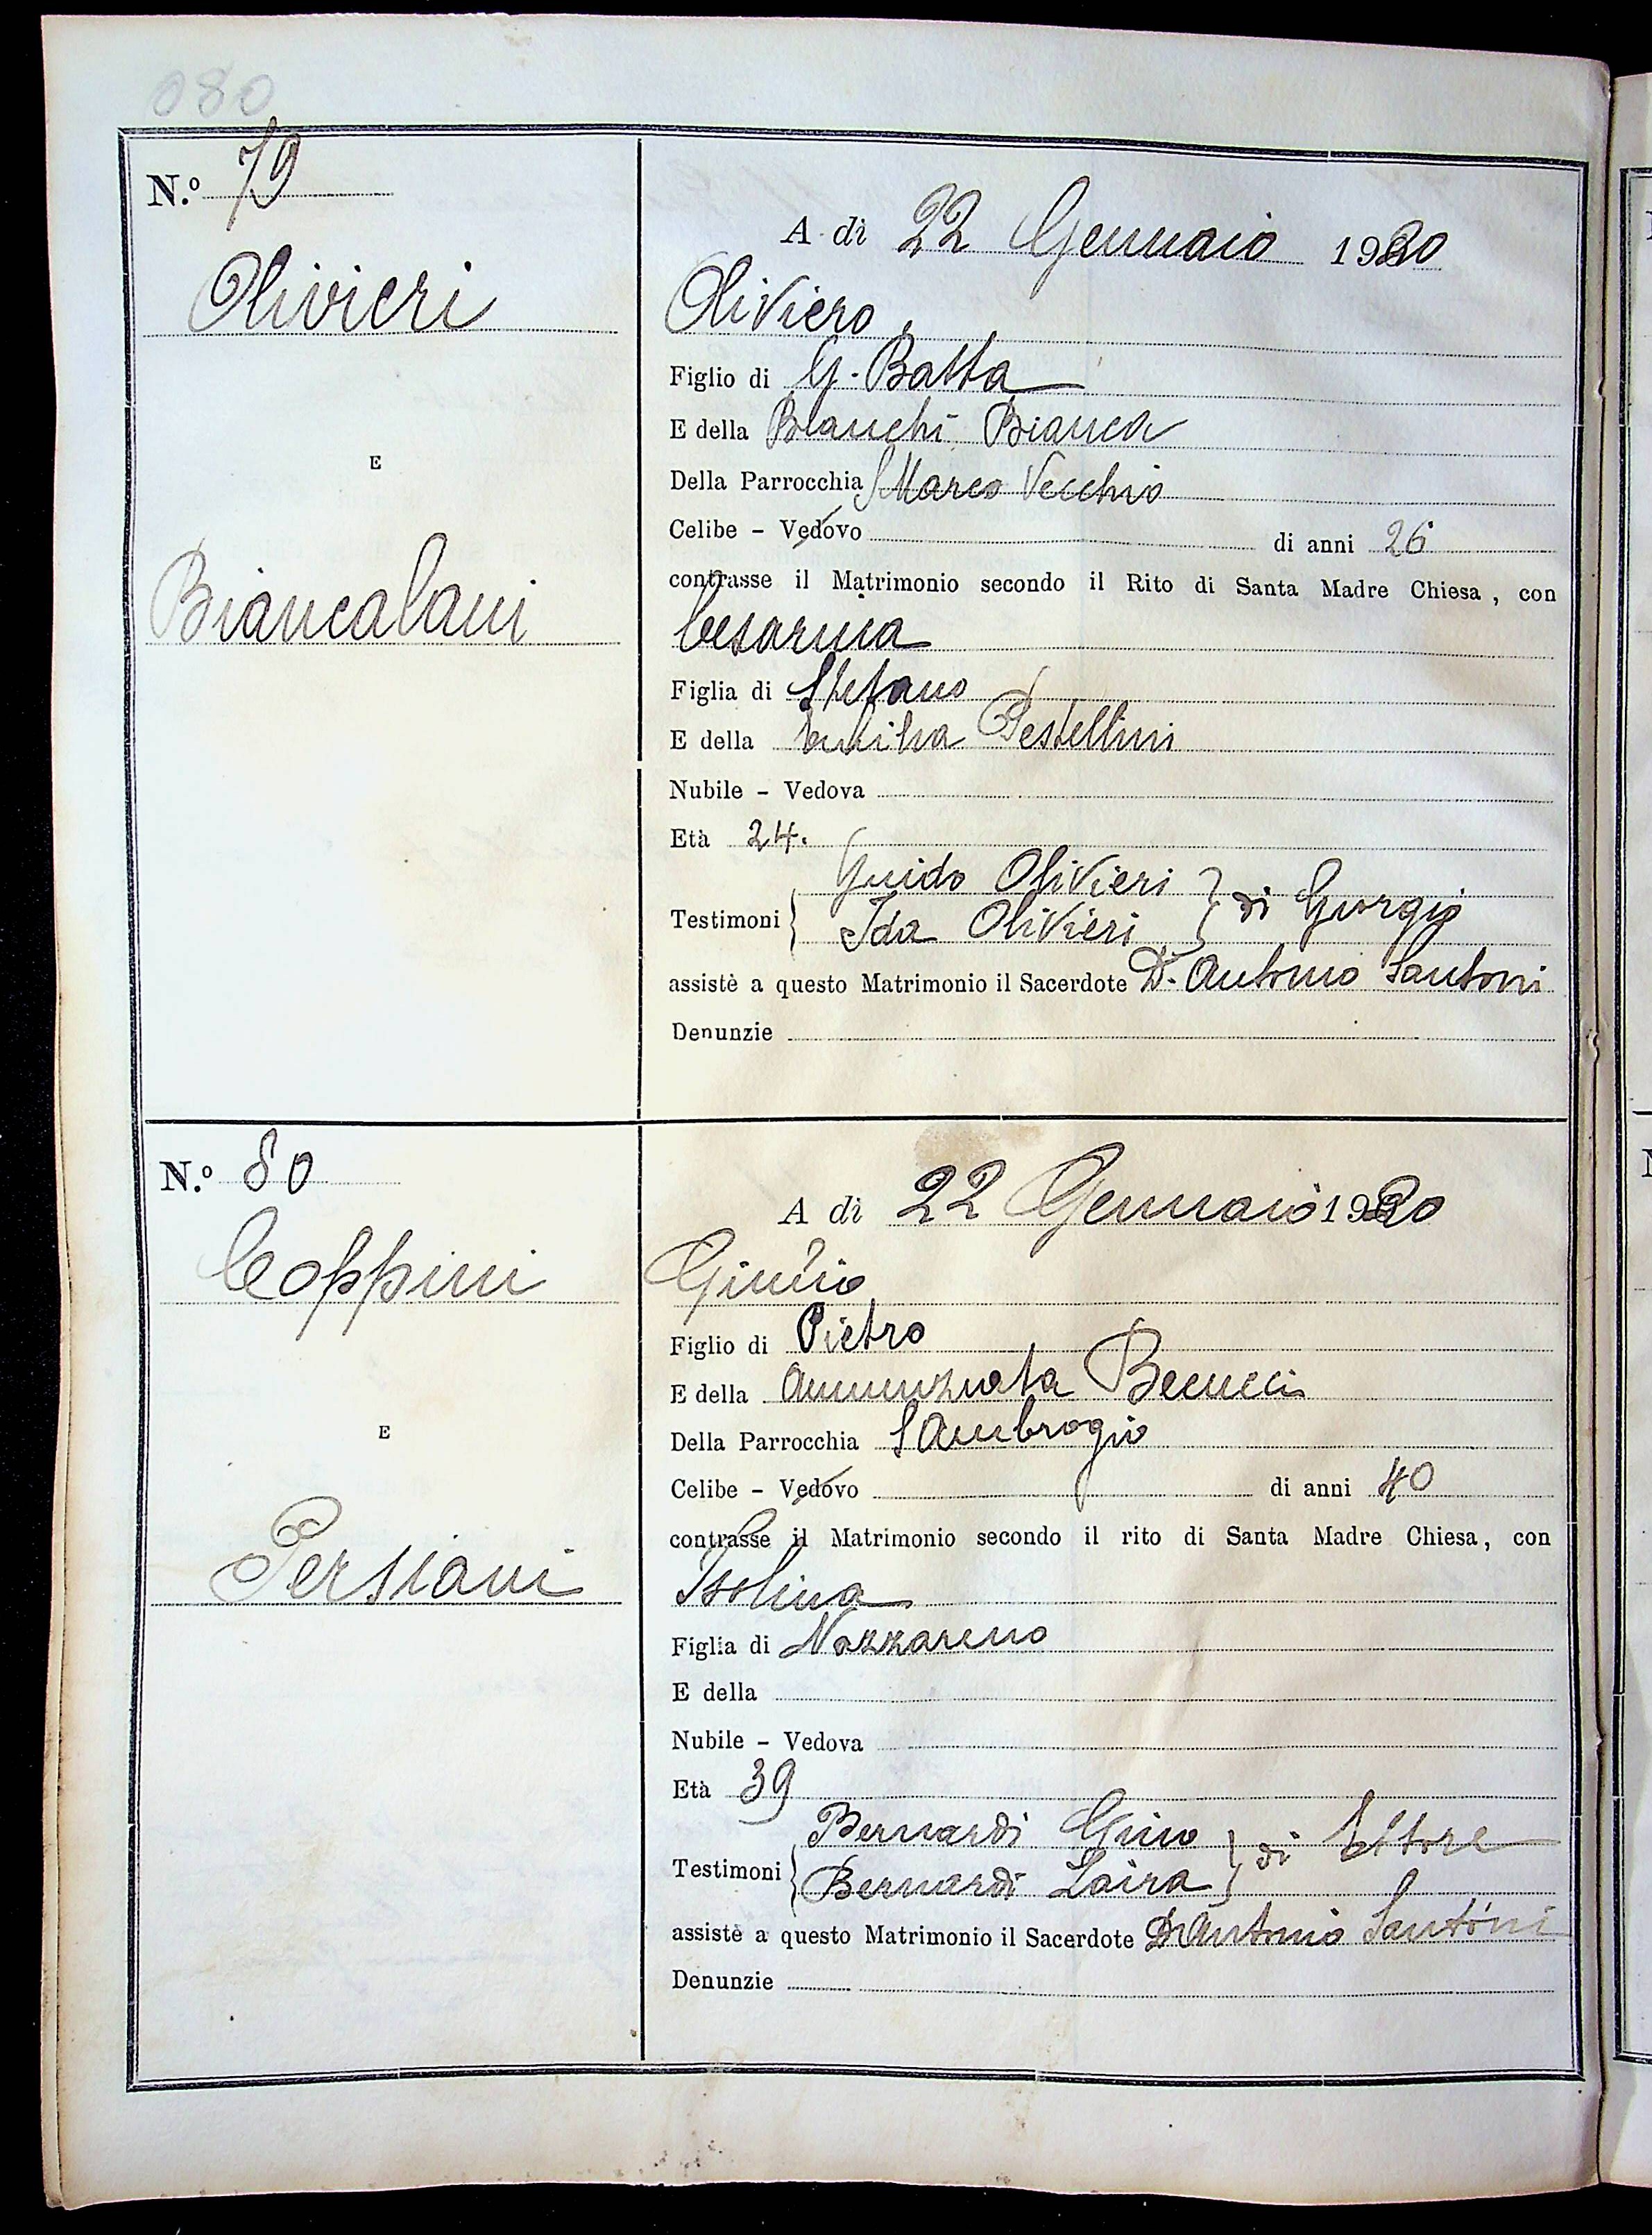 080
N.º 79
Olivieri
E
Biancalani
A dì 22 Gennaio 1920
Oliviero
Figlio di G. Batta
E della Bianchi Bianca
Della Parrocchia S Marco Vecchio
Celibe - Vedovo di anni 26
contrasse il Matrimonio secondo il Rito di Santa Madre Chiesa, con
Cesarina
Figlia di Stefano
E della Emilia Pestellini
Nubile - Vedova
Età 24.
Guido Olivieri } di Giorgio
Testimoni { Ida Olivieri
assistè a questo Matrimonio il Sacerdote D. Antonio Santoni
Denunzie
N.º 80
Coppini
E
Persiani
A dì 22 Gennaio 1920
Giulio
Figlio di Pietro
E della Annunziata Becucci
Della Parrocchia S Ambrogio
Celibe - Vedovo di anni 40
contrasse il Matrimonio secondo il rito di Santa Madre Chiesa, con
Isolina
Figlia di Nazzareno
E della
Nubile - Vedova
Età 39
Bernardi Gino } di Ettore
Testimoni { Bernardi Zaira
assistè a questo Matrimonio il Sacerdote D Antonio Santoni
Denunzie